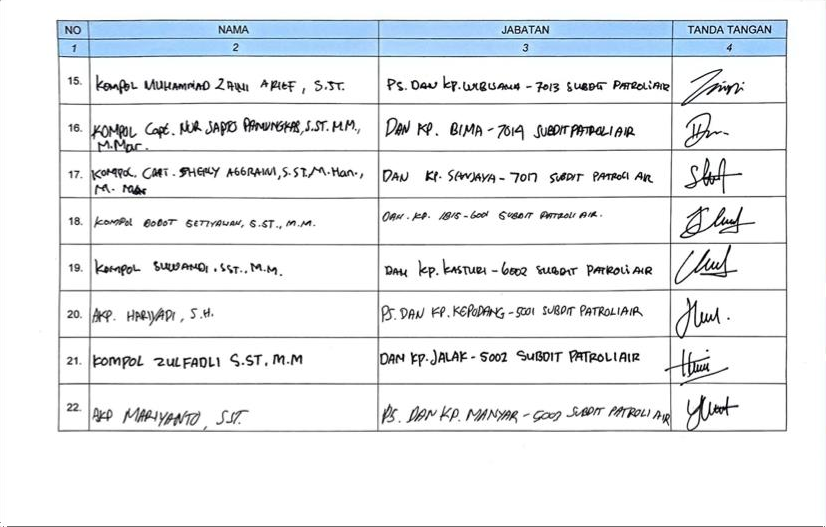 NO NAMA JABATAN TANDA TANGAN
1 2 3 4
15. KOMPOL MUHAMMAD ZAINI ARIEF, S.ST. PS. DAN KP. WIBISANA - 7013 SUBDIT PATROLI AIR
16. KOMPOL Capt. NUR SAPTO PAMUNGKAS, S.ST. M.M., DAN KP. BIMA - 7014 SUBDIT PATROLI AIR
M.Mar.
17. KOMPOL. CAPT. SHERLY AGGRAINI, S.ST, M.Han., DAN KP. SANJAYA - 7017 SUBDIT PATROLI AIR
M. Mar
18. KOMPOL BOBOT SETIYAWAN, S.ST., M.M. DAN. KP. IBIS - 6001 SUBDIT PATROLI AIR.
19. KOMPOL SUWANDI. SST., M.M. DAN KP. KASTURI - 6002 SUBDIT PATROLI AIR
20. AKP. HARIYADI, S.H. PS. DAN KP. KEPODANG - 5001 SUBDIT PATROLI AIR
21. KOMPOL ZULFADLI S.ST. M.M DAN KP. JALAK - 5002 SUBDIT PATROLI AIR
22. AKP MARIYANTO, SST. PS. DAN KP. MANYAR - SUBDIT PATROLI AIR